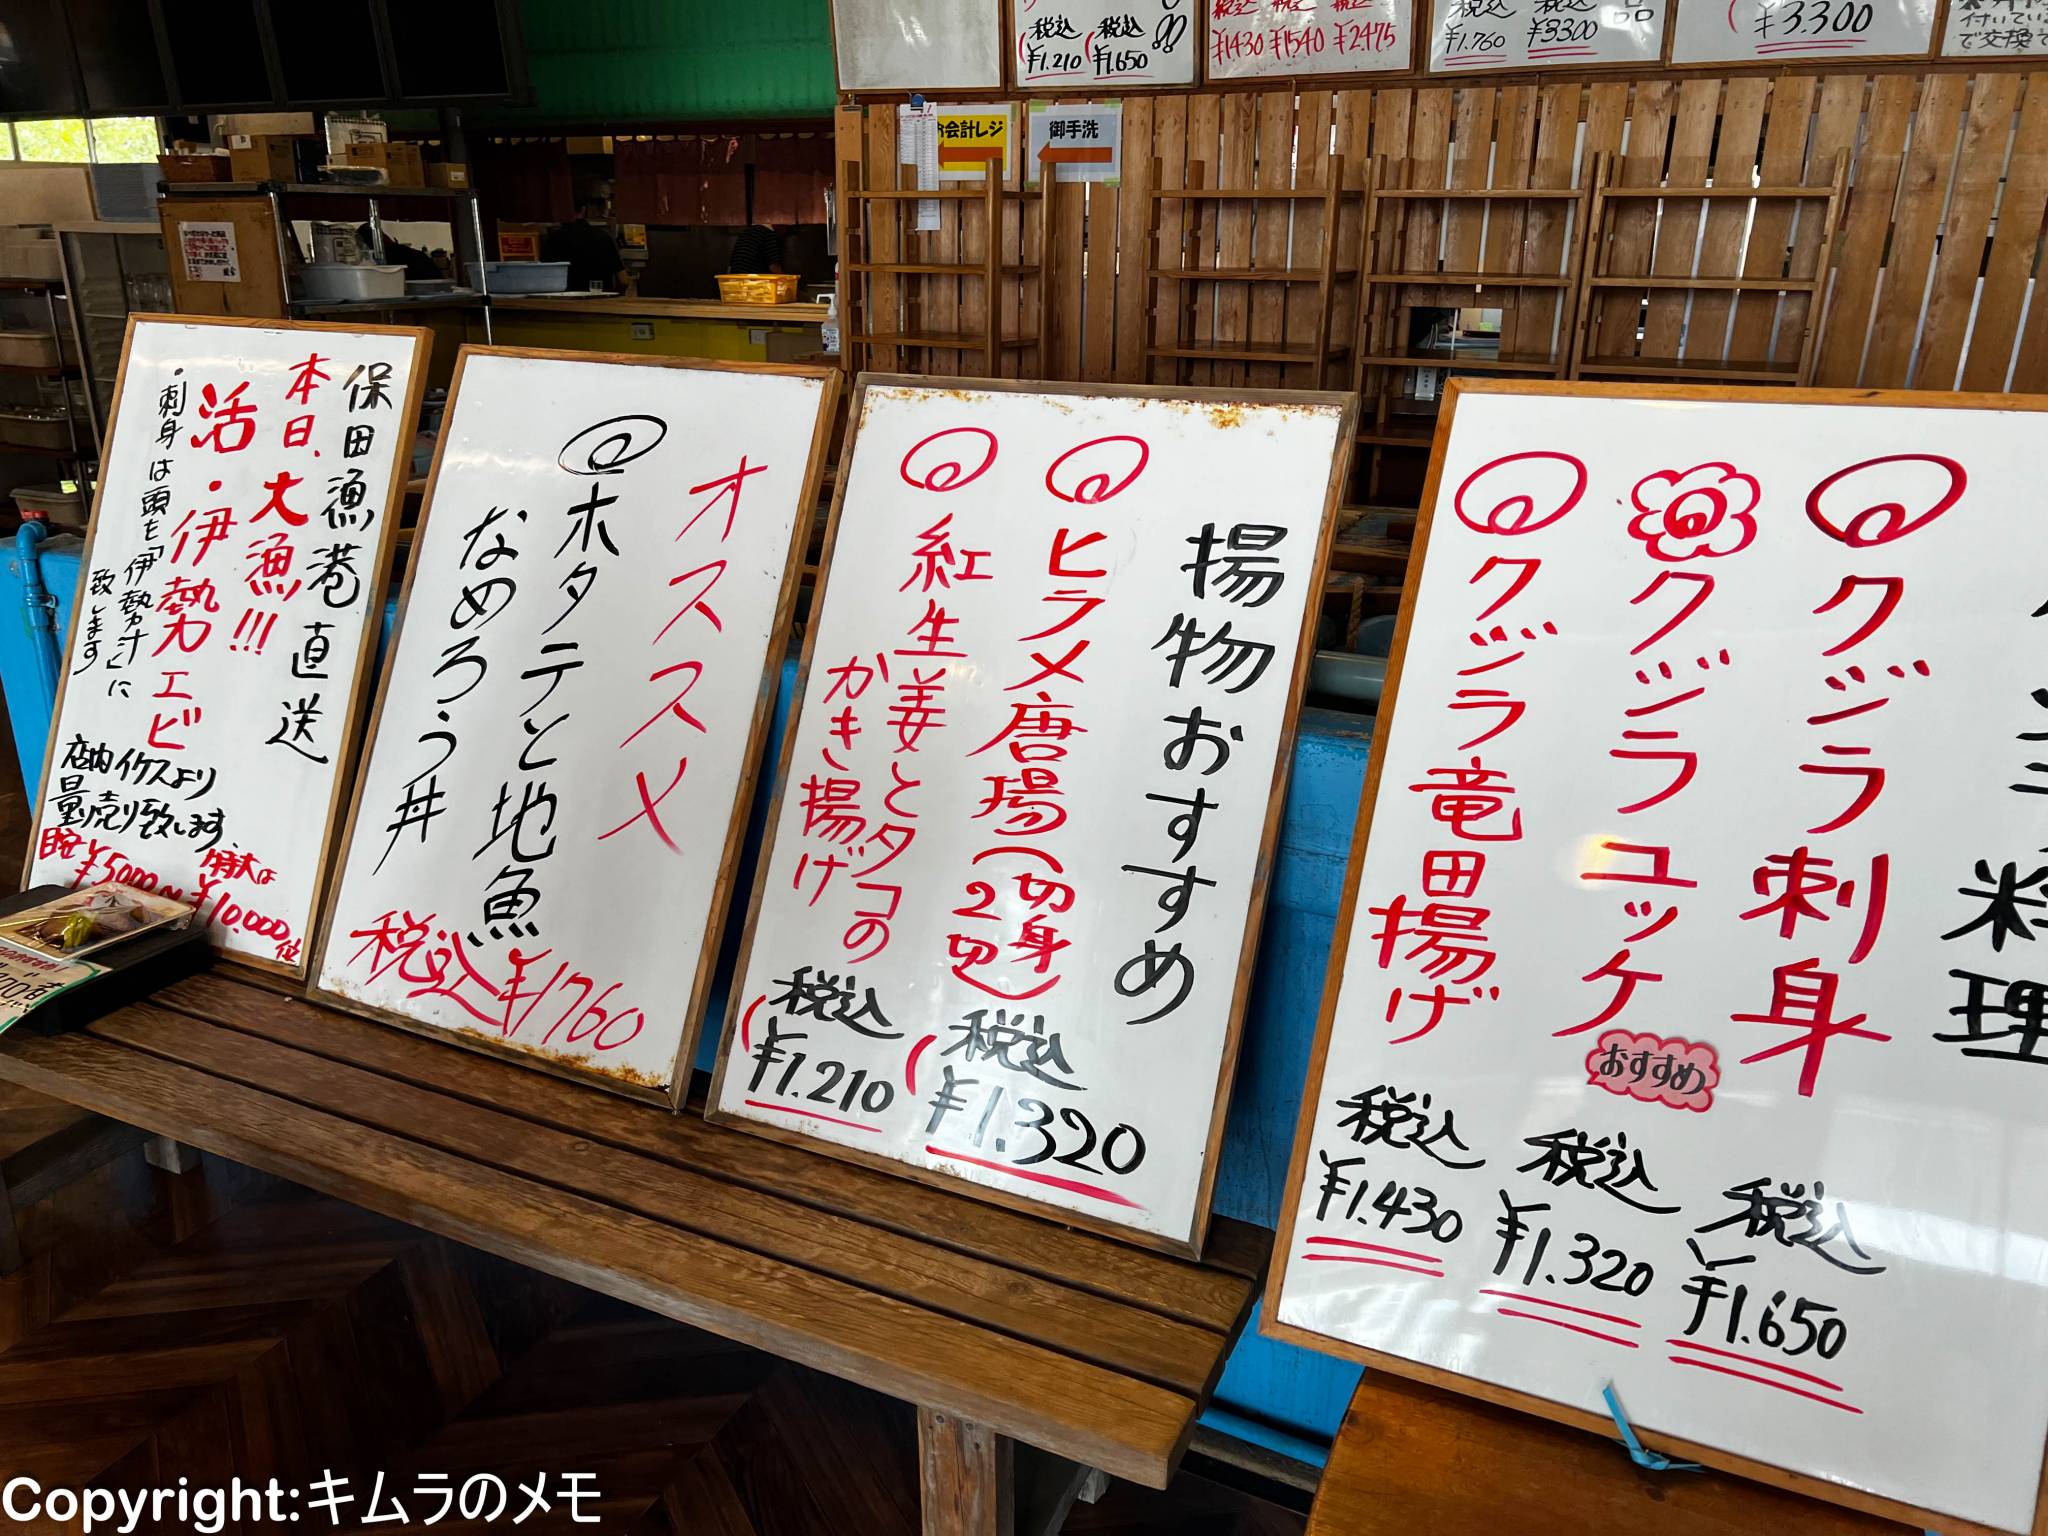 税込
税込
¥1.210
¥1.650
税込
税込
税込
¥1430
¥1540
¥2.475
税込
税込
¥1.760
¥3300
品
¥3.300
付いてい
で交換
お会計レジ
御手洗
保田漁港直送
本日、大漁!!!
活・伊勢エビ
・刺身は頭を「伊勢汁」に
致します
店内イケスより
量り売り致します、
目安
特大は
¥5000〜¥10.000位
オススメ
ホタテと地魚
なめろう丼
税込¥1760
揚物おすすめ
ヒラメ唐揚(切身2切)
税込
¥1.320
紅生姜とタコの
かき揚げ
税込
¥1.210
料理
クジラ刺身
税込
¥1.650
クジラユッケ
おすすめ
税込
¥1.320
クジラ竜田揚げ
税込
¥1.430
Copyright:キムラのメモ